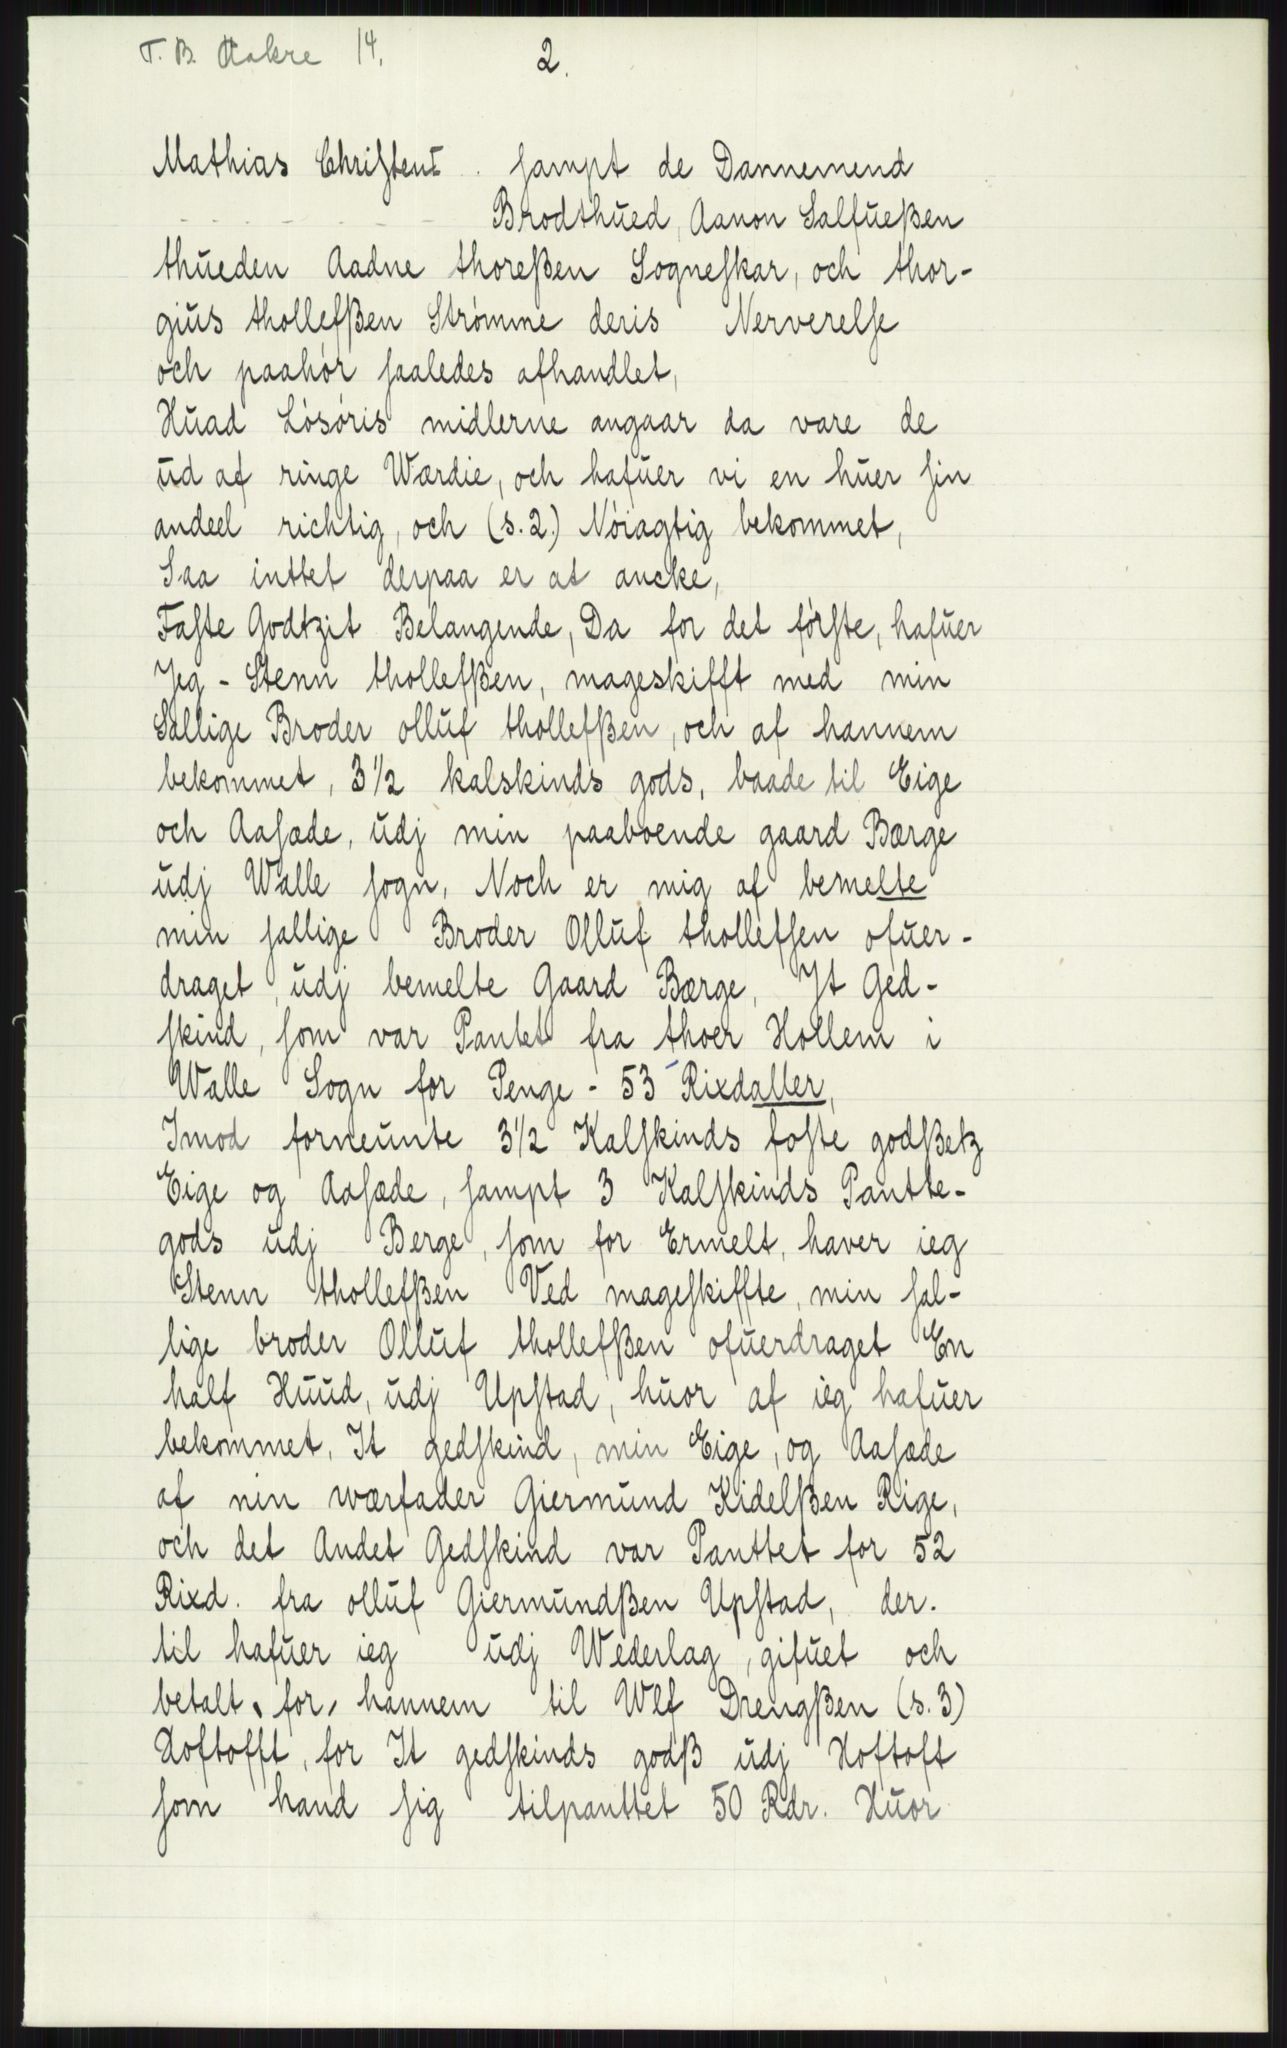 T. B. Aakre 14.
2.
Mathias Christens . sampt de Dannemend
Brodthued, Aanon Salfueßen
thueden Aadne thoreßen Sogneskar, och thor-
gius thollefßen Strømme deris Nerverelse
och paahør saaledes afhandlet,
Huad Løsøris midlerne angaar da vare de
ud af ringe Wærdie, och hafuer vi en huer sin
andeel richtig, och (s. 2.) Nøiagtig bekommet,
Saa inttet derpaa er at ancke,
Faste Godtzit Belangende, Da for det første, hafuer
Jeg - Stenn thollefßen, mageskifft med min
Sallige Broder olluf thollefßen, och af hannem
bekommet, 3 1/2 kalskinds gods, baade til Eige
och Aasæde, udj min paaboende gaard Bærge
udj Walle sogn, Noch er mig af bemelte
min sallige Broder Olluf thollefsen ofuer-
draget, udj bemelte Gaard Bærge, It Ged-
skind, som var Pantet fra thoer Hollem i
Walle Sogn for Penge - 53 Rixdaller,
Imod forneunte 3 1/2 Kalskinds foste godßetz
Eige og Aasæde, sampt 3 Kalskinds Pantte-
gods udj Berge, som for Ermelt, haver ieg
Stenn tholleßen Ved mageskiffte, min sal-
lige broder Olluf tholleßen ofuerdraget En
half Huud, udj Upstad, huor af ieg hafuer
bekommet, It gedskind, min Eige, og Aasæde
af nin wærfader Giermund Kidelßen Rige,
och det Andet Gedskind var Panttet for 52
Rixd. fra olluf Giermundßen Upstad, der.
til hafuer ieg udj Wederlag, gifuet och
betalt, for, hannem til Wlf Drengßen (s. 3)
Hoftofft, for It gedskinds godß udj Hoftoft
som hand sig tilpanttet 50 Rdr. Huor